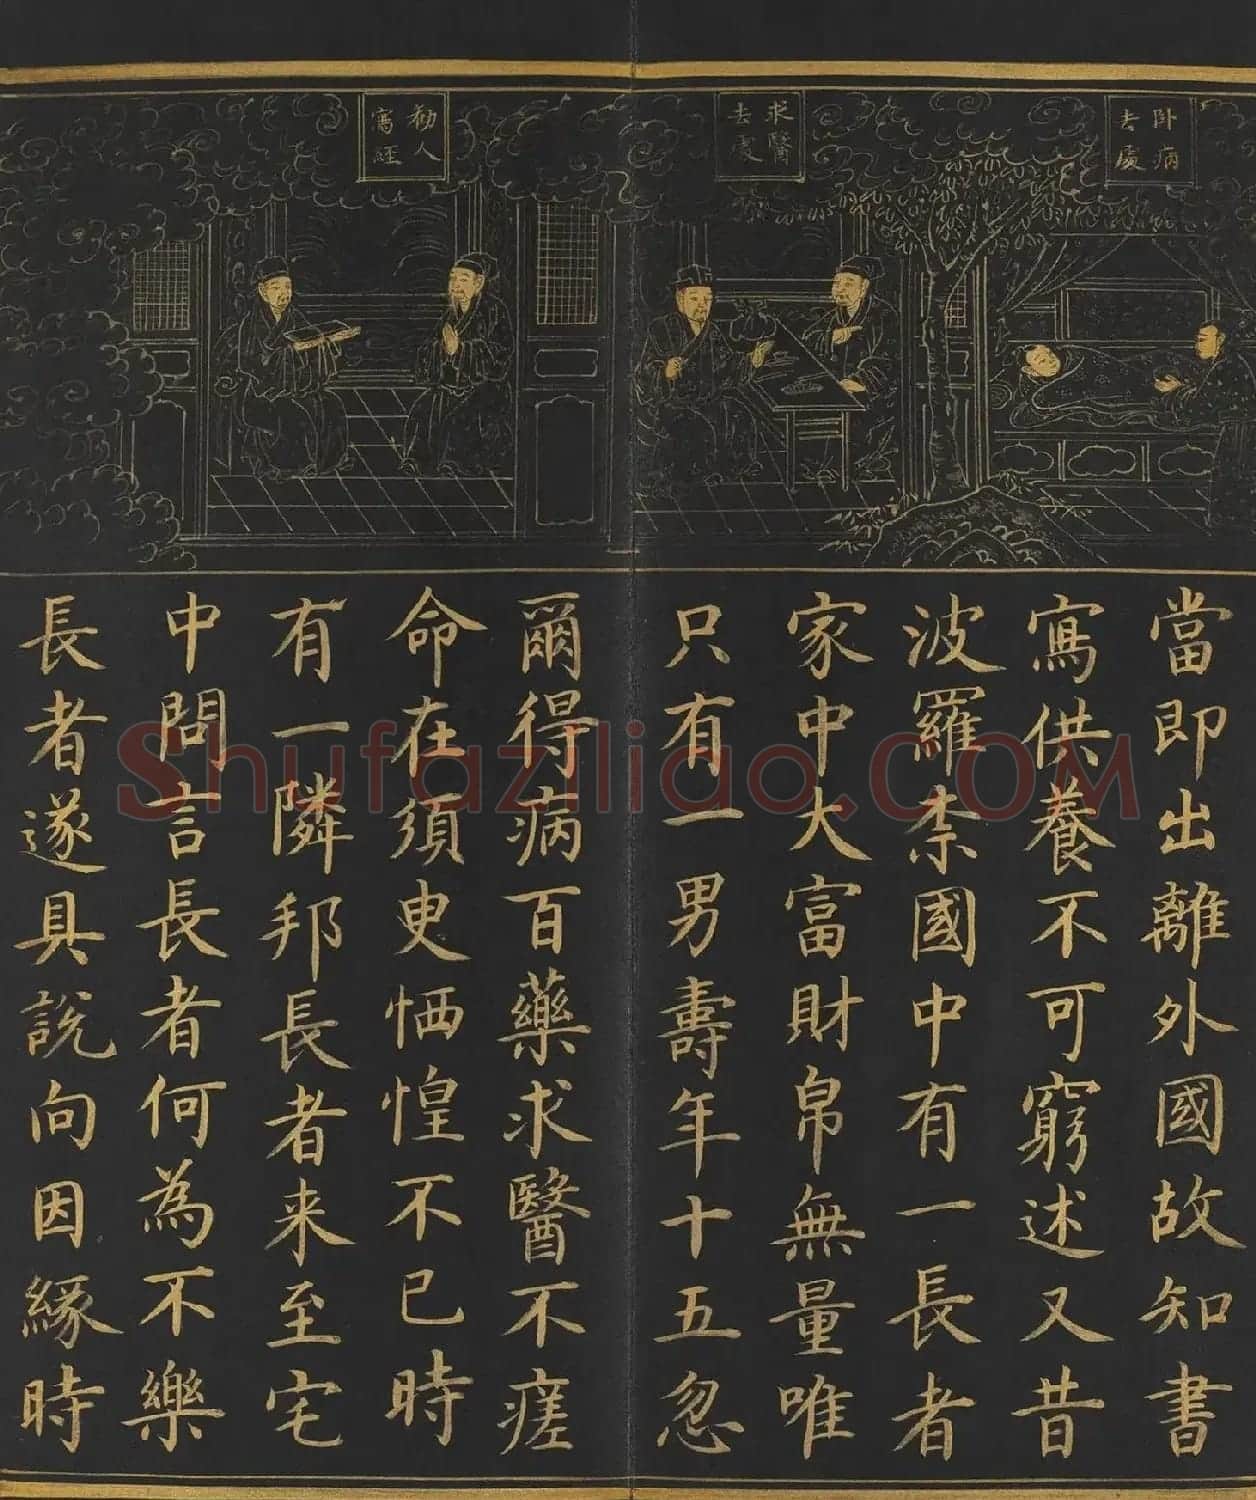 卧病
去處
求醫
去處
勸人
寫經
當即出離外國故知書
寫供養不可窮述又昔
波羅柰國中有一長者
家中大富財帛無量唯
只有一男壽年十五忽
爾得病百藥求醫不瘥
命在須臾恓惶不已時
有一隣邦長者来至宅
中問言長者何為不樂
長者遂具說向因緣時
Shufaziliao.COM